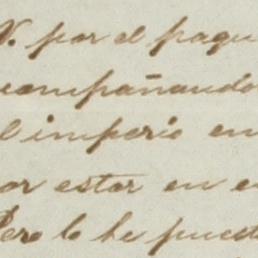 V. por el paque
compañando
l imperio en
or estar en e
Pero lo he puest